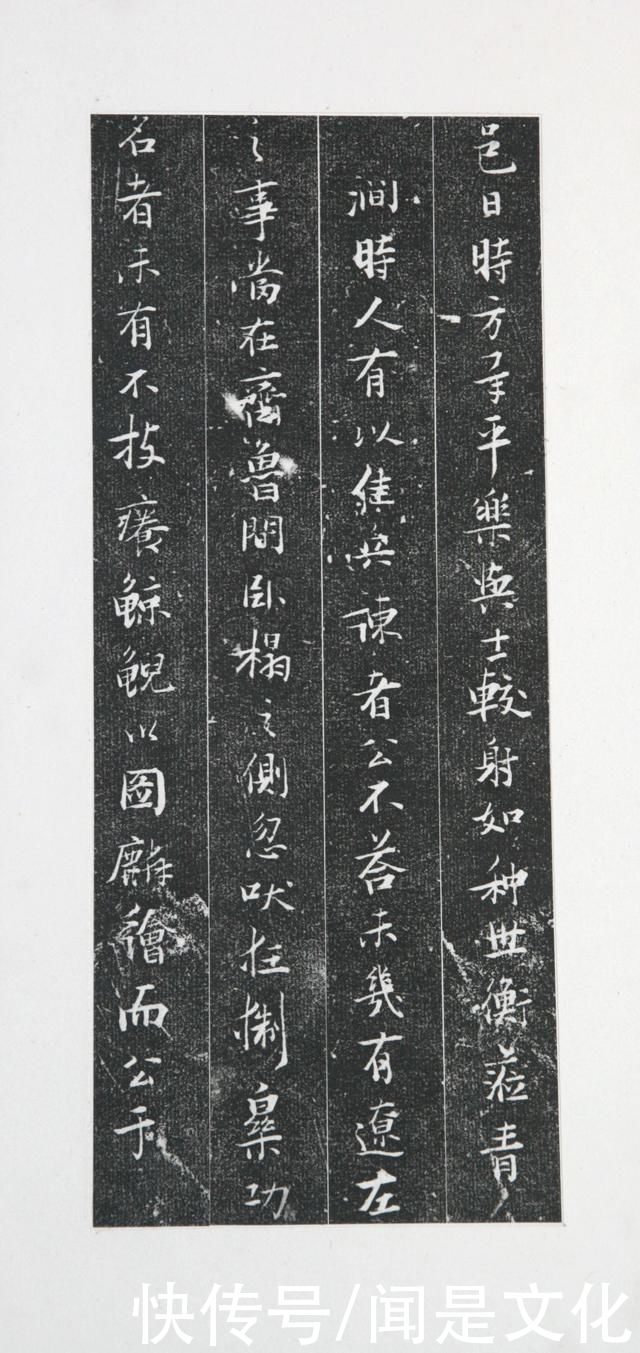 邑日時方承平樂與士較射如种世衡蒞青
澗時人有以佳兵諫者公不荅未幾有遼左
之事當在齊魯間臥榻之側忽吠狂猘功
名者未有不技癢鯨鯢以圖麟繪而公于
快传号/闻是文化